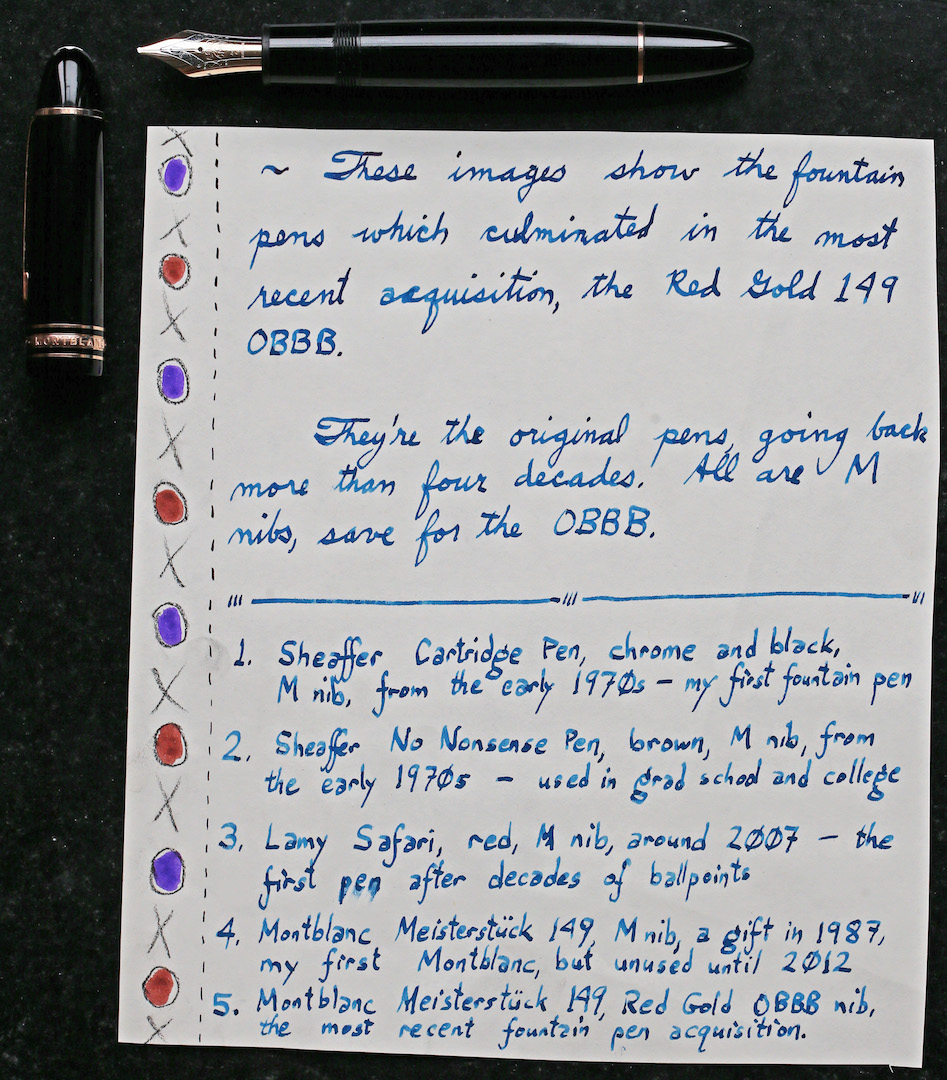 ~ These images show the fountain
pens which culminated in the most
recent acquisition, the Red Gold 149
OBBB.
They're the original pens, going back
more than four decades. All are M
nibs, save for the OBBB.
1. Sheaffer Cartridge Pen, chrome and black,
M nib, from the early 1970s – my first fountain pen
2. Sheaffer No Nonsense Pen, brown, M nib, from
the early 1970s – used in grad school and college
3. Lamy Safari, red, M nib, around 2007 – the
first pen after decades of ballpoints
4. Montblanc Meisterstück 149, M nib, a gift in 1987,
my first Montblanc, but unused until 2012
5. Montblanc Meisterstück 149, Red Gold OBBB nib,
the most recent fountain pen acquisition.
MONTBLANC